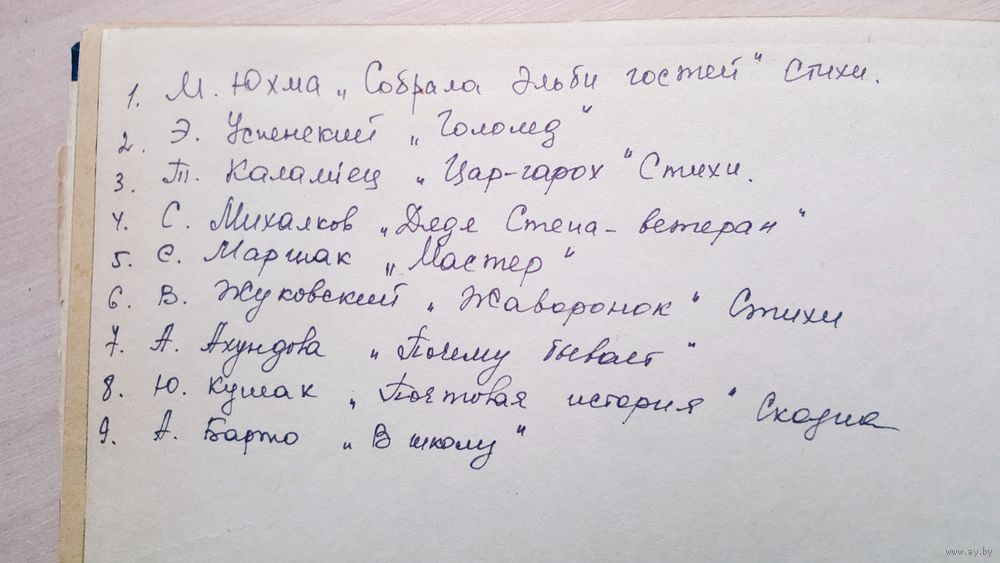 1. М. Юхма „Собрала Эльби гостей" Стихи.
2. Э. Успенский „Голомед"
3. Т. Каламіец „Цар-гарох" Стихи.
4. С. Михалков „Дядя Степа - ветеран"
5. С. Маршак „Мастер"
6. В. Жуковский „Жаворонок" Стихи
7. А. Ахундова „Почему бывает"
8. Ю. Кушак „Почтовая история" Сказка
9. А. Барто „В школу"
www.ay.by